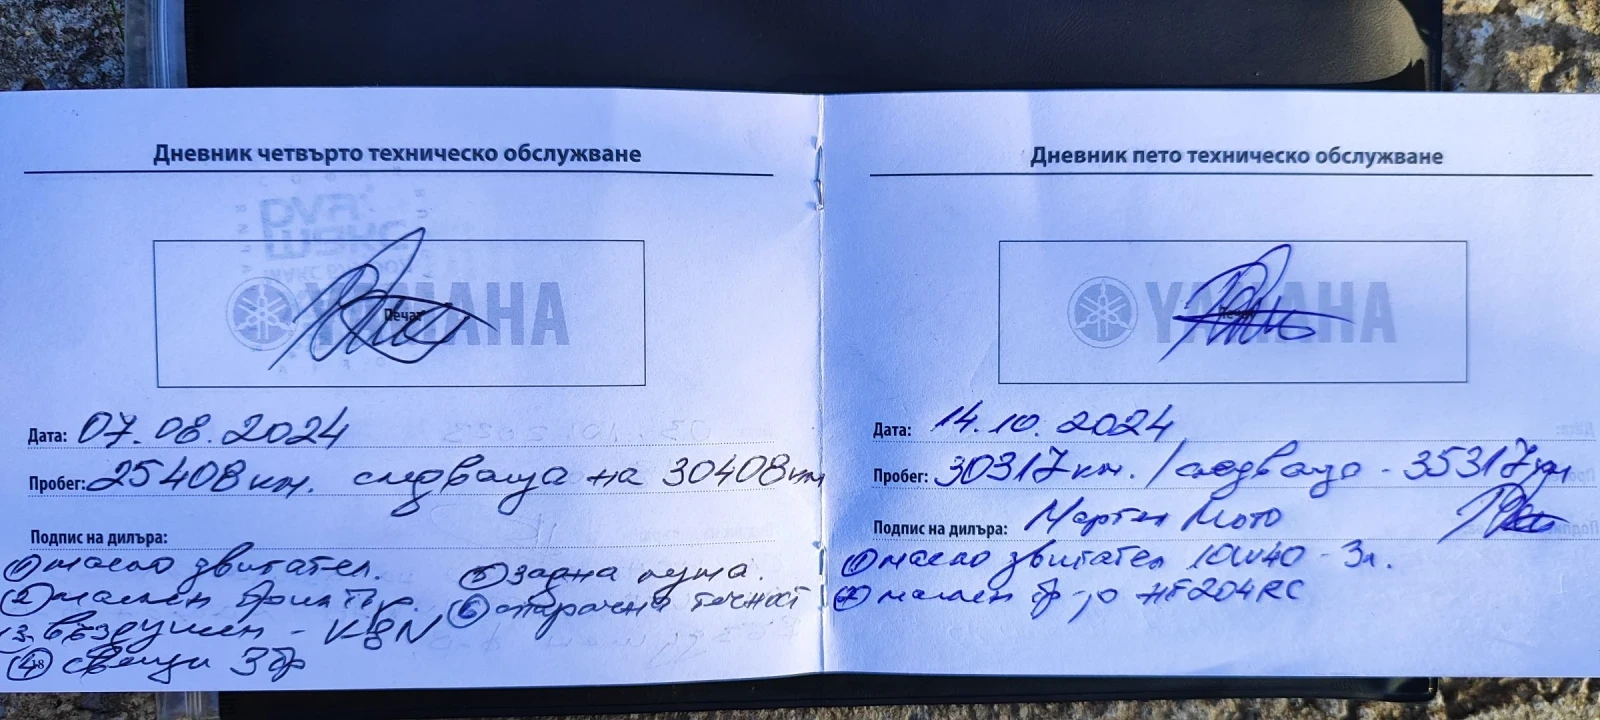 Дневник четвърто техническо обслужване
YAMAHA
Печат
Дата: 07.08.2024
Пробег: 25408 км. следваща на 30408 км
Подпис на дилъра:
① масло звигател.
② маслен филтър.
3. въздушен - K&N
④ свещи 3 бр
18
⑤ задна гума.
⑥ спирачна течност
Дневник пето техническо обслужване
YAMAHA
Печат
Дата: 14.10.2024
Пробег: 30317 км. / следваща - 35317 км
Подпис на дилъра: Мартен Мото
① масло звигател 10W40 - 3л.
② маслен ф-р HF204RC